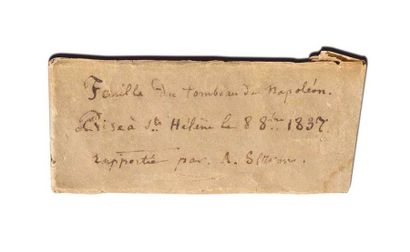 Feuille du tombeau de Napoléon.
Prise à Ste Hélène le 8 8bre 1837
rapportée par A.